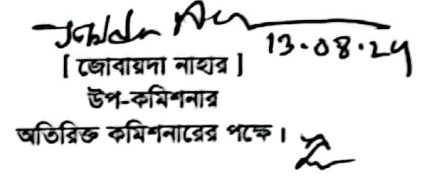 13.08.24
[ জোবায়দা নাহার ]
উপ-কমিশনার
অতিরিক্ত কমিশনারের পক্ষে।